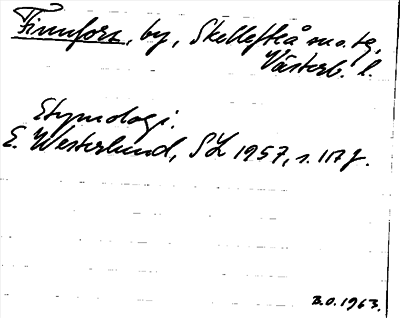 Finnfors, by, Skellefteå sn o. tg,
Västerb. l.
Etymologi.
E. Westerlund, SL 1957, s.
B.O. 1963.